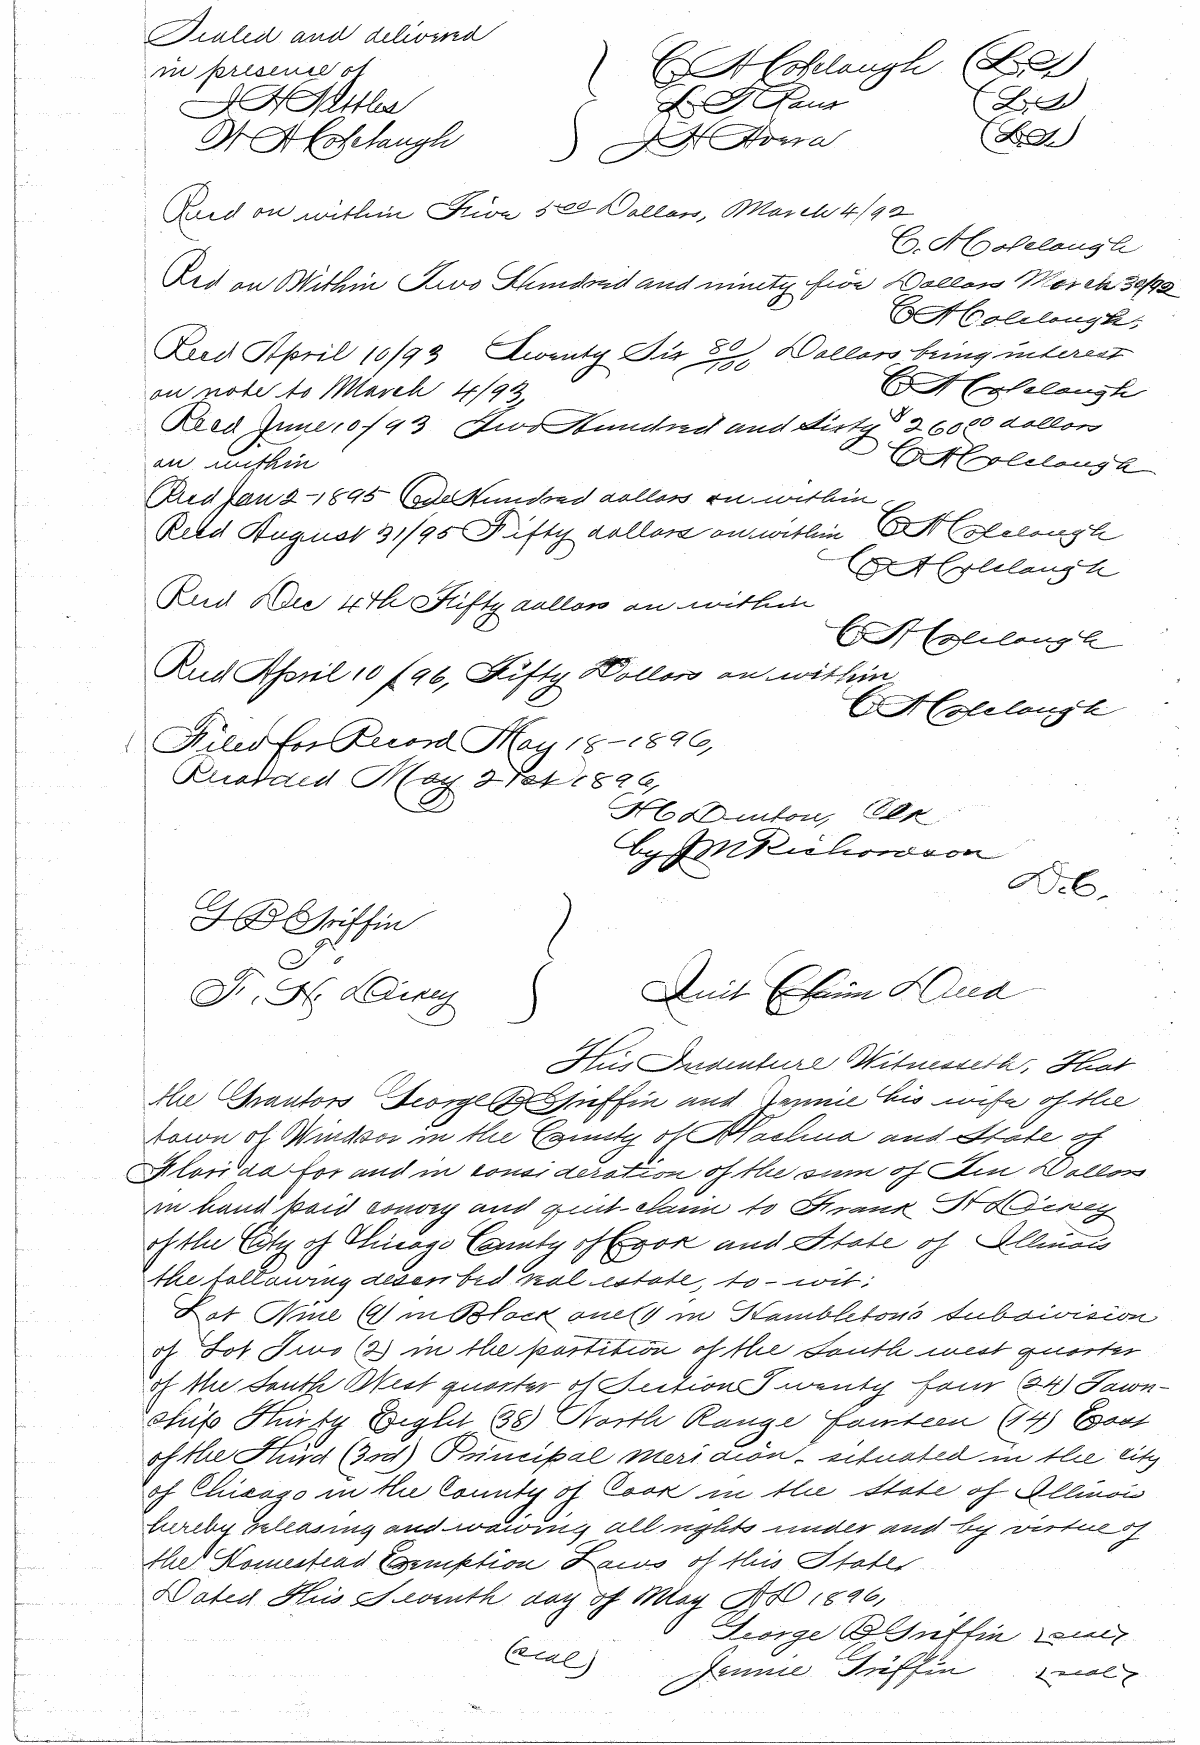 Sealed and delivered
in presence of
C A Colclough (L.S.)
J A Pettles
L. T. Rous (L.S)
W A Colclough
J N Avera (L.S.)
Recd on within Five 5 00 Dollars, March 4/92
C. A Colclough
Recd on Within Two Hundred and ninety five Dollars March 30/92
C A Colclough.
Recd April 10/93 Twenty Six 80/100 Dollars being interest
on note to March 4/93,
C A Colclough
Recd June 10/93 Two Hundred and Sixty $260 00 dollars
on within
C A Colclough
Recd Jan 2-1895 One Hundred dollars on within
Recd August 31/95 Fifty dollars on within C A Colclough
C A Colclough
Recd Dec 4th Fifty dollars on within
C A Colclough
Recd April 10/96, Fifty Dollars on within
C A Colclough
Filed for Record May 18-1896,
Recorded May 21st 1896,
H C Denton, Clk
by J M Richardson
D.C.
G B Griffin
To
F. H. Dickey
Quit Claim Deed
This Indenture Witnesseth, That
the Grantors George B Griffin and Jennie his wife of the
town of Windsor in the County of Alachua and State of
Florida for and in consideration of the sum of Ten Dollars
in hand paid convey and quit-claim to Frank H Dickey
of the City of Chicago County of Cook and State of Illinois
the following described real estate, to-wit:
Lot Nine (9) in Block one (1) in Hambleton's subdivision
of Lot Two (2) in the partition of the South west quarter
of the South West quarter of Section Twenty four (24) Town-
ship Thirty Eight (38) North Range fourteen (14) East
of the Third (3rd) Principal Meridian - situated in the City
of Chicago in the County of Cook in the State of Illinois
hereby releasing and waiving all rights under and by virtue of
the Homestead Exemption Laws of this State
Dated This Seventh day of May A D 1896,
George B Griffin (seal)
(seal) Jennie Griffin (seal)